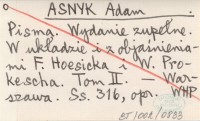 ASNYK Adam
Pisma. Wydanie zupełne.
W układzie i z objaśnienia-
mi F. Hoesicka i W. Pro-
kescha. Tom II. — War-
szawa. Ss. 316, opr. WHP
BJ/001/0833